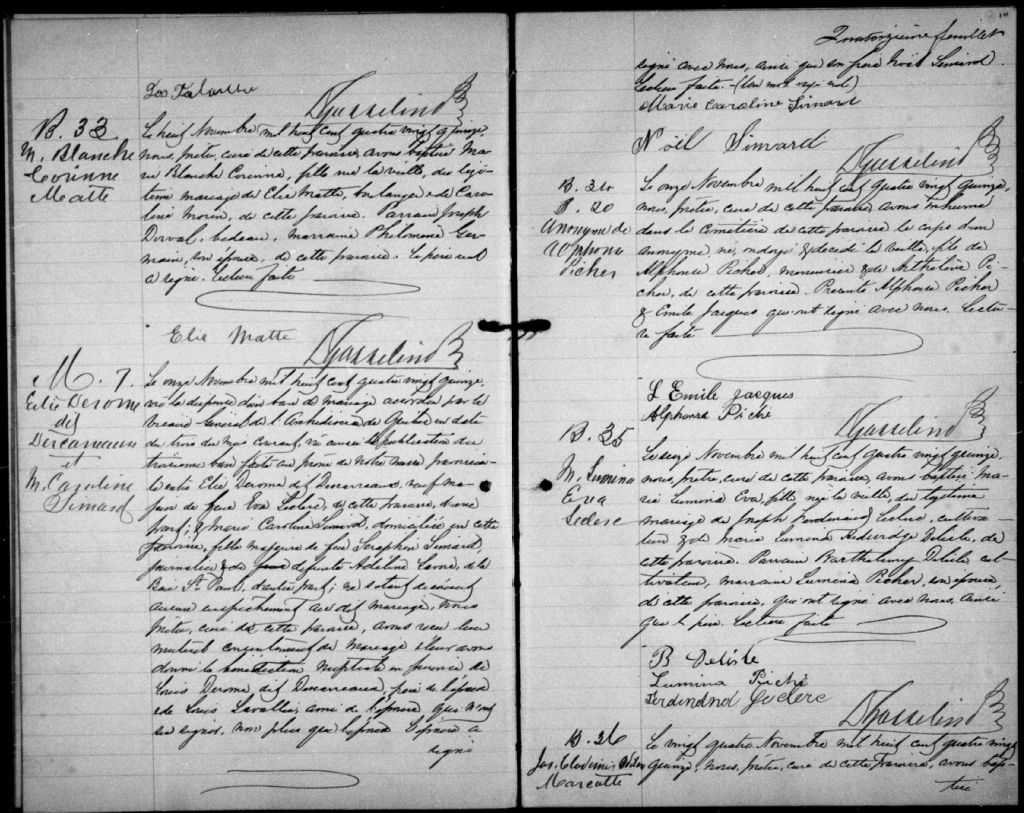 B. 33
M. Blanche
Corinne
Matte
DGosselin Ptr
Le neuf Novembre mil huit cent quatre vingt quinze
nous, prêtre, curé de cette paroisse, avons baptisé Ma-
rie Blanche Corinne, fille née la veille, du légi-
time mariage de Elie Matte, boulanger & de Caro-
line Morin, de cette paroisse. Parrain Joseph
Dorval, bedeau, marraine Philomène Ger-
main, son épouse, de cette paroisse. Le père seul
a signé. Lecture faite
Elie Matte
DGosselin Ptr
M. 7.
Elie Derome
dit
Descareaux
et
M. Caroline
Simard
Le onze Novembre mil huit cent quatre vingt quinze,
vu la dispense d'un ban de mariage accordée par le
Vicaire Général de l'Archidiocèse de Québec en date
du trois du mois courant, vu aussi la publication du
troisième ban faite au prône de notre messe paroissia-
le entre Elie Derome dit Descareaux, veuf ma-
jeur de feue Eva Leclerc, de cette paroisse, d'une
part; & Marie Caroline Simard, domiciliée en cette
paroisse, fille majeure de feu Seraphin Simard,
journalier & de défunte Adéline Lavoie, de la
Baie St Paul, d'autre part; ne s'étant découvert
aucun empêchement au dit mariage, nous
prêtre, curé de cette paroisse, avons reçu leur
mutuel consentement de mariage & leur avons
donné la bénédiction nuptiale en présence de
Louis Derome dit Descareaux, père de l'époux
& de Louis Lavallée, ami de l'épouse qui n'ont
su signer, non plus que l'époux. L'épouse a
signé
Quatorzième feuillet
signé avec nous, ainsi que son père Noël Simard.
Lecture faite. - (Un mot rayé nul)
Marie Caroline Simard
Noël Simard
DGosselin Ptr
B. 34
S. 20
Anonyme de
Alphonse
Picher
Le onze Novembre mil huit cent quatre vingt quinze,
nous, prêtre, curé de cette paroisse, avons inhumé
dans le cimetière de cette paroisse le corps d'un
anonyme, né, ondoyé & décédé la veille, fils de
Alphonse Picher, menuisier & de Arthéline Pi-
cher, de cette paroisse. Présents Alphonse Picher
& Emile Jacques qui ont signé avec nous. Lectu-
re faite
L Emile Jacques
Alphonse Piché
DGosselin Ptr
B. 35
M. Lumina
Eva
Leclerc
Le seize Novembre mil huit cent quatre vingt quinze
nous, prêtre, curé de cette paroisse, avons baptisé Ma-
rie Lumina Eva, fille née la veille, du légitime
mariage de Joseph Ferdinand Leclerc, cultiva-
teur & de Maria Lumina Hedwidge Delisle, de
cette paroisse. Parrain Barthelemy Delisle cul-
tivateur, marraine Lumina Picher, son épouse,
de cette paroisse, qui ont signé avec nous, ainsi
que le père. Lecture faite
B Delisle
Lumina Piché
Ferdinand Leclerc
DGosselin Ptr
B. 36
Marcotte
Le vingt quatre Novembre mil huit cent quatre vingt
quinze, nous, prêtre, curé de cette paroisse, avons bap-
tisé